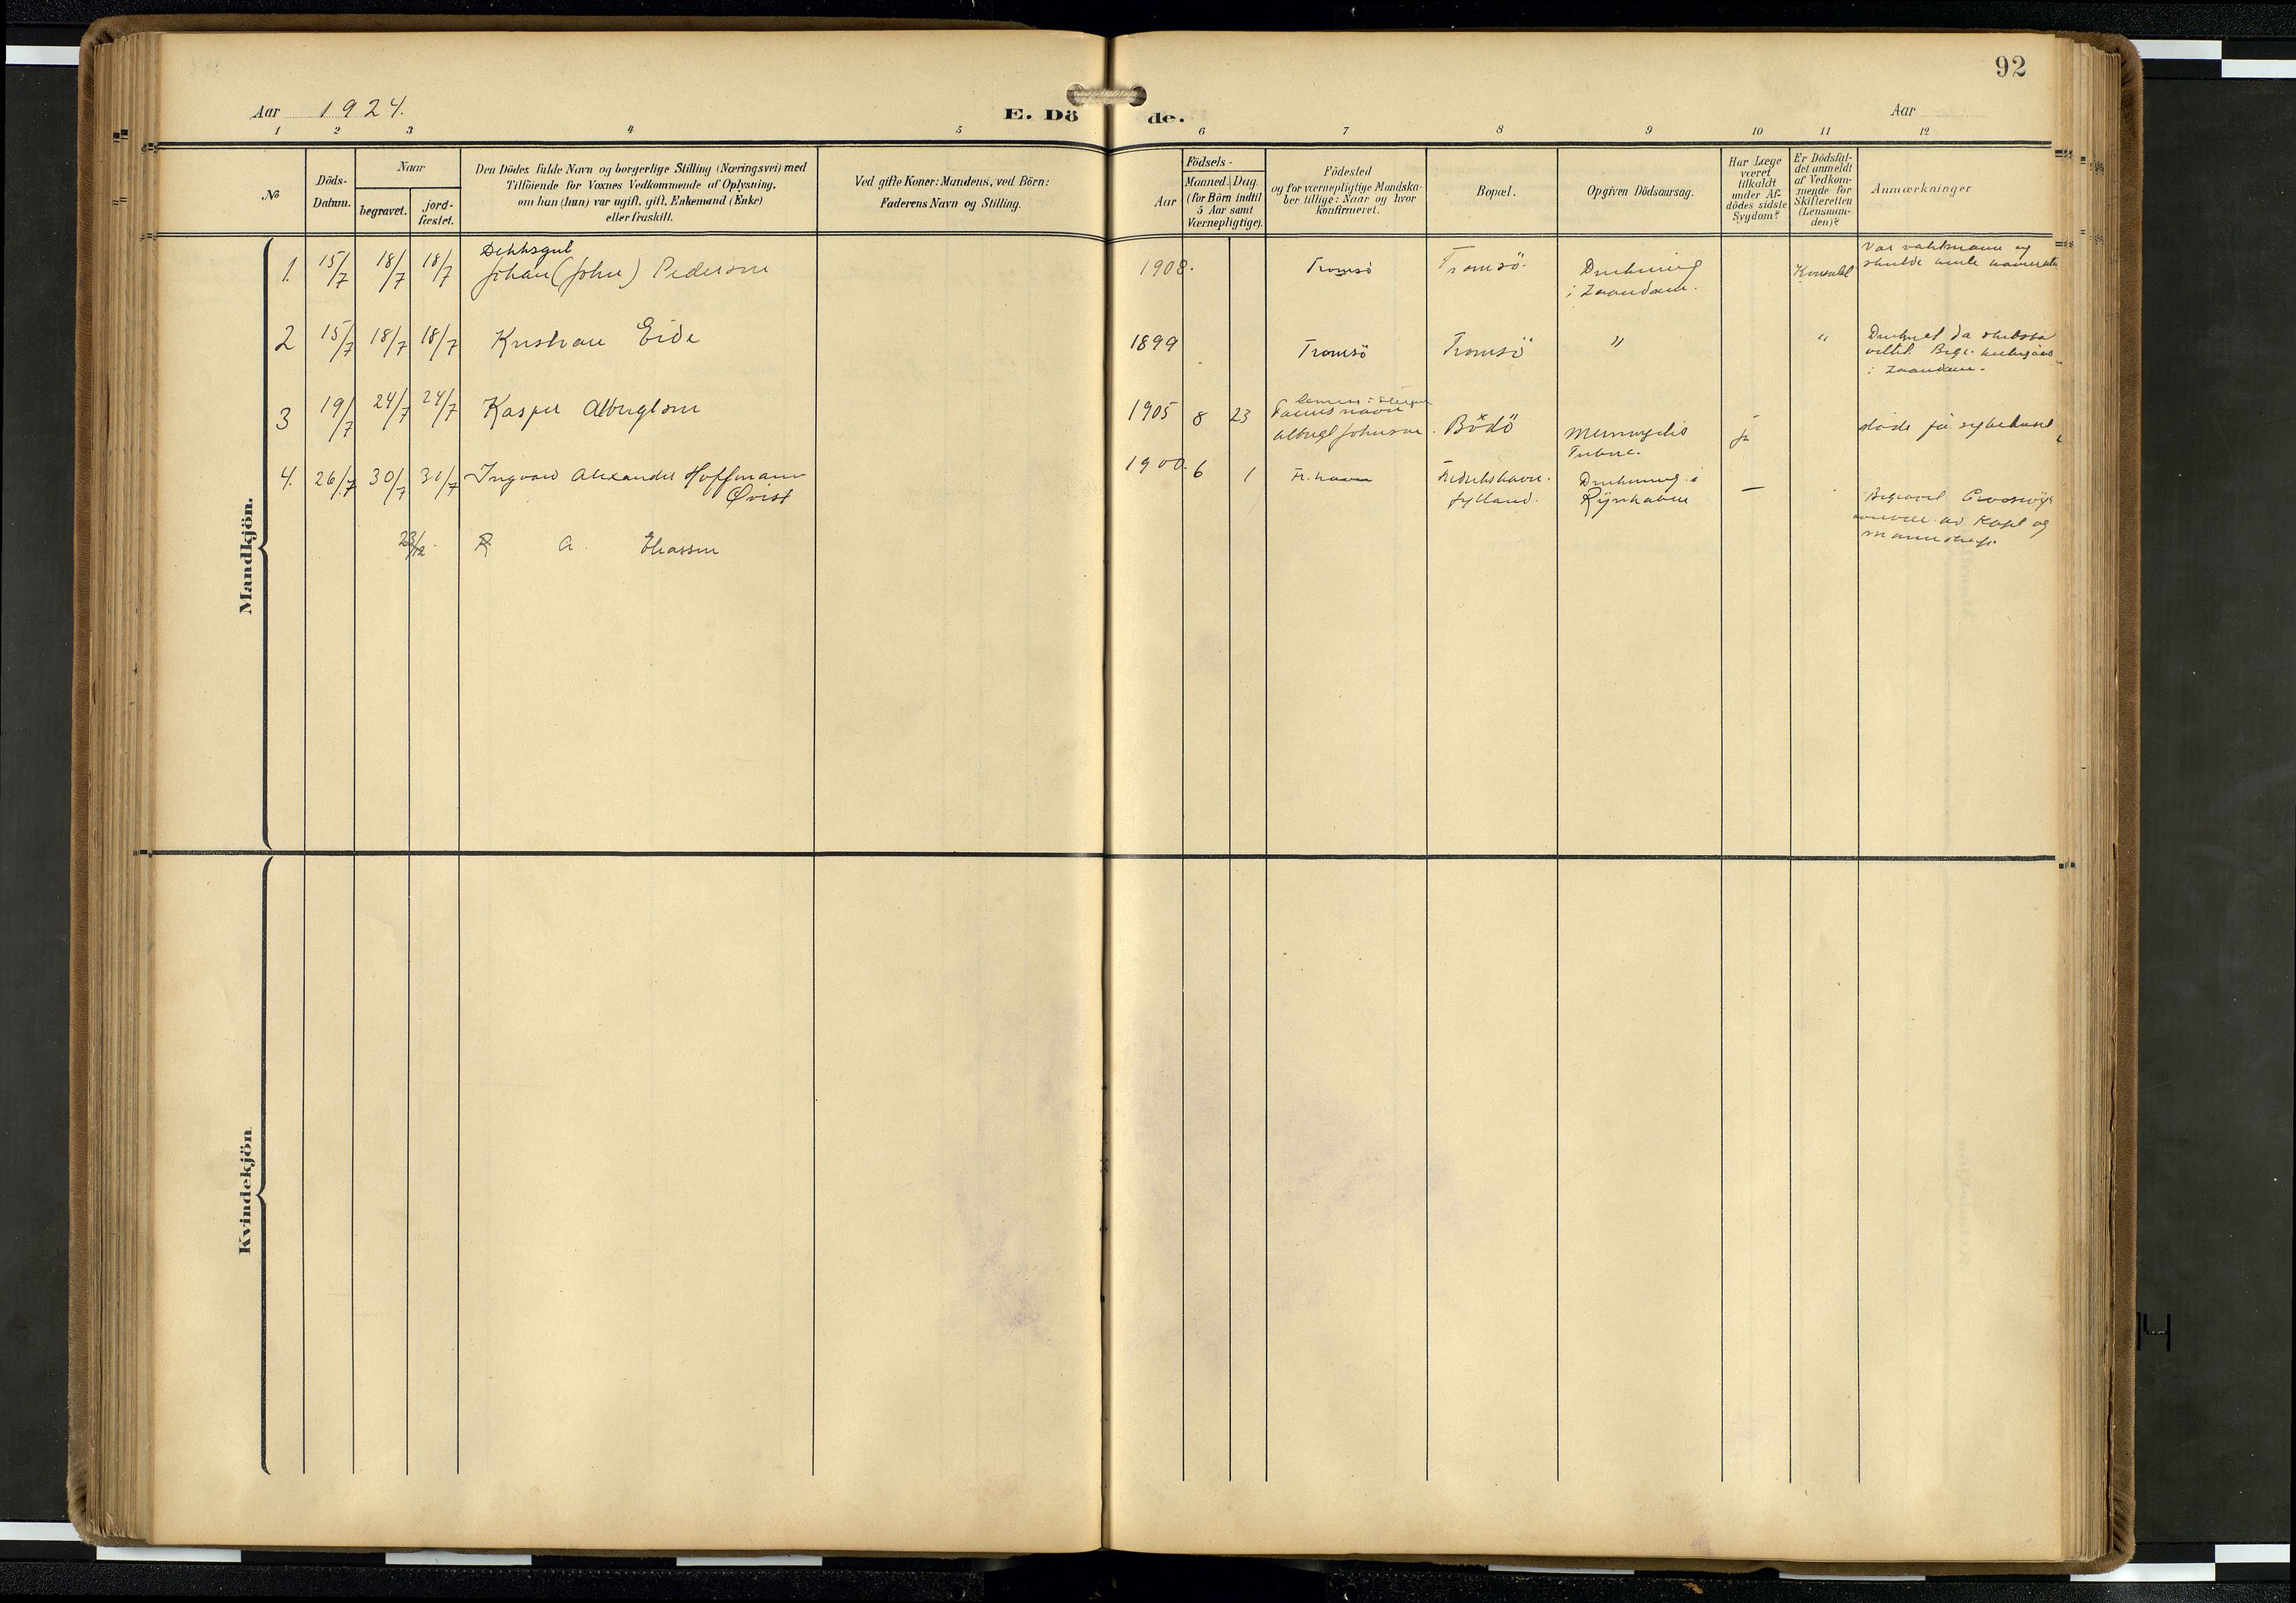 92
Aar 1924.
E. Dö de.
Aar
1 2 3 4 5 6 7 8 9 10 11 12
No
Döds-
Datum.
Naar
begravet.
jord-
fæstet.
Den Dödes fulde Navn og borgerlige Stilling (Næringsvei) med
Tilföiende for Voxnes Vedkommende af Oplysning,
om han (hun) var ugift, gift, Enkemand (Enke)
eller fraskilt.
Ved gifte Koner: Mandens, ved Börn:
Faderens Navn og Stilling.
Födsels-
Aar
Maaned. Dag.
(for Börn indtil
5 Aar samt
Værnepligtige).
Födested
og for værnepligtige Mandska-
ber tillige: Naar og hvor
konfirmeret.
Bopæl.
Opgiven Dödsaarsag.
Har Læge
været
tilkaldt
under Af-
dödes sidste
Sygdom?
Er Dödsfal-
det anmeldt
af Vedkom-
mende for
Skifteretten
(Lensman-
den)?
Anmærkninger
Mandkjön.
1. 15/7 18/7 18/7 Dekksgut
Johan (John) Pedersen
1908. Tromsö Tromsö. Drukning
i Zaandam.
Konsulat
Var vaktmann og
skulde
2 15/7 18/7 18/7 Kristian Eide
1899 Tromsö Tromsö " "
Druknet da
i Zaandam.
3 19/7 24/7 24/7 Kasper
1905 8 23
Johnsen. Bödö
ja
døde på sykehuset
4. 26/7 30/7 30/7 Ingvard Alexander Hoffmann
Qvist
1900. 6 1 Fr.havn Fredrikshavn.
Jylland.
Drukning i
Rijnhaven
—
Begravet Crooswijk
av Kapt og
mannskap.
23/12. R A. Eliassen
Kvindekjön